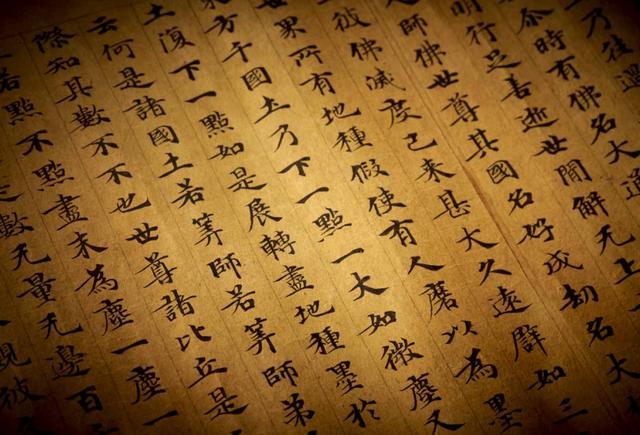 乃往過
尒時有佛名大通
明行足善逝世間解无上
師佛世尊其國名好成劫名大
彼佛滅度已来甚大久遠譬如三
界所有地種假使有人磨以為墨
方千國土乃下一點一大如微塵又
土復下一點如是展轉盡地種墨於
云何是諸國土若筭師若筭師弟
際知其數不不也世尊諸比丘是
若點不點盡末為塵一塵一
數无量无邊百
觀彼久